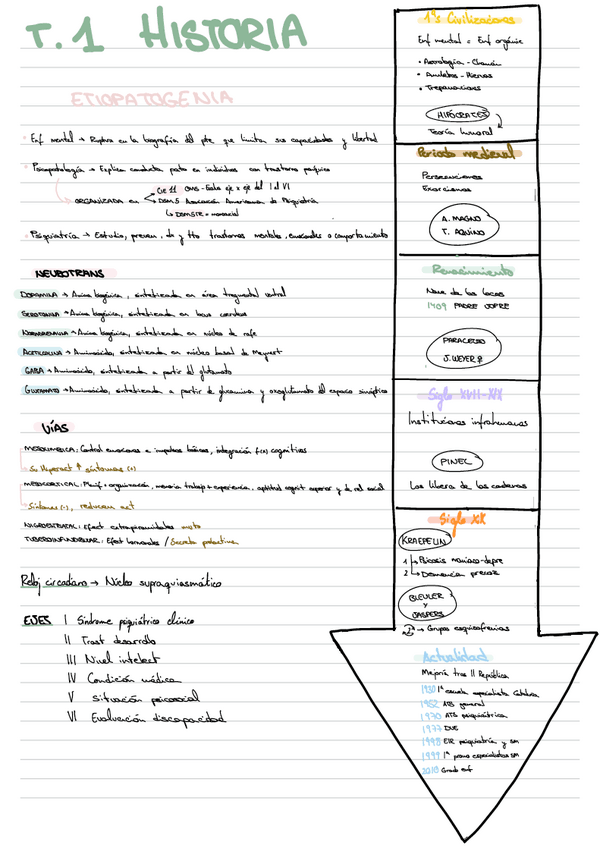 T.1 HISTORIA
ETIOPATOGENIA
Enf mental → Ruptura en la biografía del pte que limita sus capacidades y libertad
Psicopatología → Explica conducta pato en individuos con trastorno psíquico
ORGANIZADA en
CIE 11 OMS - Eje x eje del I al VI
DSM5 Asociación Americana de Psiquiatría
↳ DSM5TR = nomenclat
Psiquiatría → Estudio, preven, dx y tto trastornos mentales, emocionales o comportamiento
NEUROTRANS
DOPAMINA → Amina biogénica, sintetizada en área tegmental ventral
SEROTONINA → Amina biogénica, sintetizada en locus coeruleus
NORADRENALINA → Amina biogénica, sintetizada en núcleo de rafe
ACETILCOLINA → Aminoácido, sintetizada en núcleo basal de Meynert
GABA → Aminoácido, sintetizada a partir del glutamato
GLUTAMATO → Aminoácido, sintetizado a partir de glutamina y oxoglutamato del espacio sináptico
VÍAS
MESOLIMBICA: Control emociones e impulsos básicos, integración f(x) cognitivas
Su Hiperact ↑ síntomas (+)
MESOCORTICAL: Planif + organización, memoria trabajo + experiencia, aptitud cognit superior y de rel social
Síntomas (-), reducen act
NIGROESTRIATAL: Efect extrapiramidales
TUBEROINFUNDIBULAR: Efect hormonales / Secreta prolactina
Reloj circadiano → Núcleo supraquiasmático
EJES I Síndrome psiquiátrico clínico
II Trast desarrollo
III Nivel intelect
IV Condición médica
V Situación psicosocial
VI Evaluación discapacidad
1ªs Civilizaciones
Enf mental = Enf orgánic
• Astrología - Chamán
• Amuletos - Hierbas
• Trepanaciones
HIPÓCRATES
Teoría humoral
Periodo medieval
Persecuciones
Exorcismos
A. MAGNO
T. AQUINO
Renacimiento
Nave de los locos
1409 PADRE JOFRE
PARACELSO
J. WEYER
Siglo XVII-XIX
Instituciones infrahumanas
PINEL
Los libera de las cadenas
Siglo XX
KRAEPELIN
1 → Psicosis maniaco-depre
2 → Demencia precoz
BLEULER
y
JASPERS
→ Grupos esquizofrenias
Actualidad
Mejoría tras II República
1930 1ª escuela especialista Cataluña
1952 ATS general
1970 ATS psiquiátrica
1977 DUE
1998 EIR psiquiatría y sm
1999 1ª promo especialistas SM
2010 Grado enf